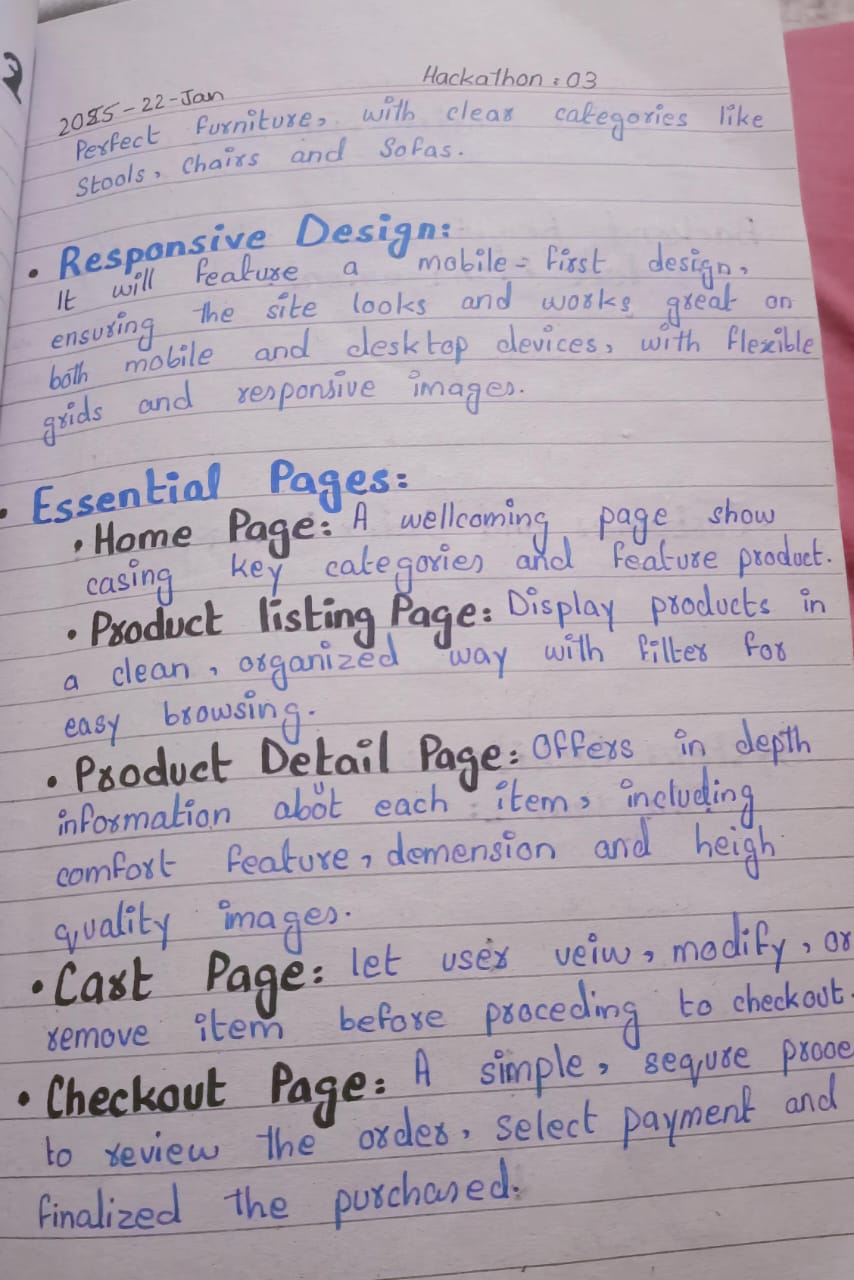 Hackathon : 03
2025-22-Jan
Perfect furniture, with clear categories like
Stools, Chairs and Sofas.
• Responsive Design:
It will feature a mobile-first design,
ensuring the site looks and works great on
both mobile and desktop devices, with flexible
grids and responsive images.
• Essential Pages:
• Home Page: A wellcoming page show
casing key categories and feature product.
• Product listing Page: Display products in
a clean, organized way with filter for
easy browsing.
• Product Detail Page: Offers in depth
information about each item, including
comfort feature, demension and heigh
quality images.
• Cart Page: let user veiw, modify, or
remove item before proceding to checkout.
• Checkout Page: A simple, sequre
to review the order, select payment and
finalized the purchased.